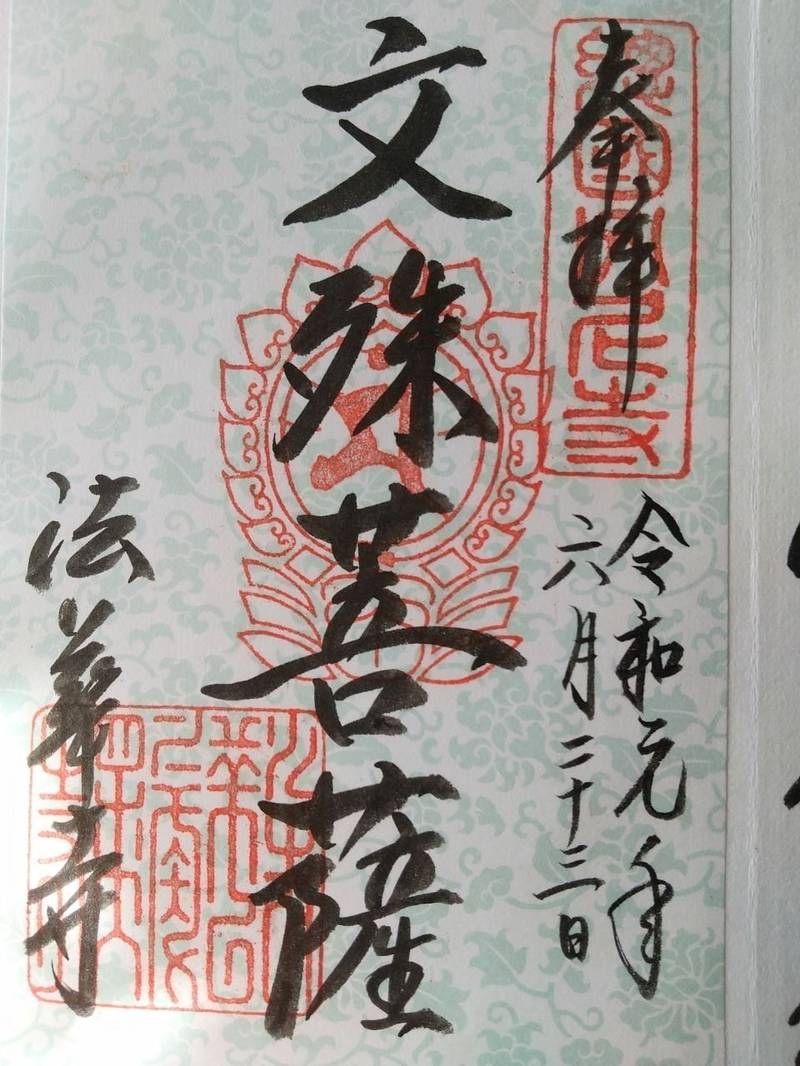 奉拝
令和元年
六月二十三日
文殊菩薩
法華寺